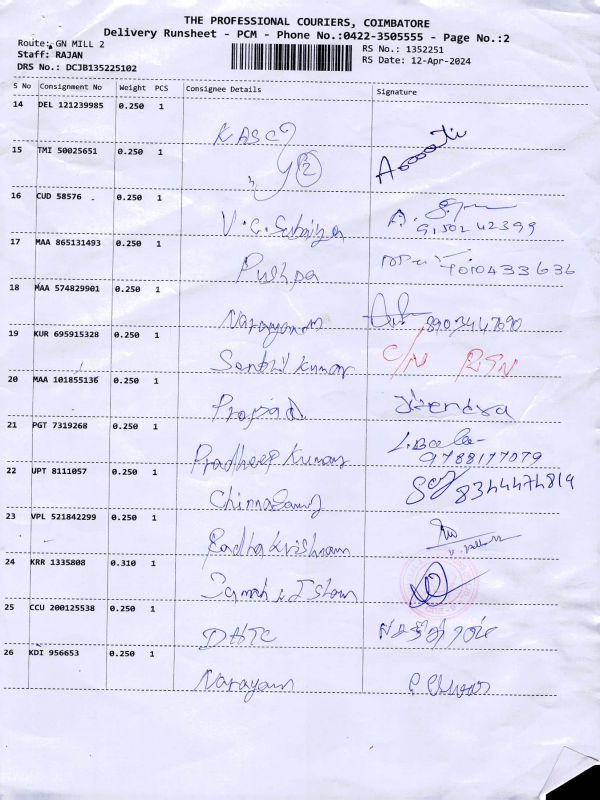 THE PROFESSIONAL COURIERS, COIMBATORE
Delivery Runsheet - PCM - Phone No.:0422-3505555 - Page No.:2
Route: GN MILL 2
RS No.: 1352251
Staff: RAJAN
RS Date: 12-Apr-2024
DRS No.: DCJB135225102
S No Consignment No Weight PCS Consignee Details Signature
14 DEL 121239985 0.250 1
KASC
15 TMI 50025651 0.250 1
2
16 CUD 58576 . 0.250 1
9150242399
17 MAA 865131493 0.250 1
Pushpa
18 MAA 574829901 0.250 1
Narayanan 8903447690
19 KUR 695915328 0.250 1
Senthil Kumar C/N RTN
20 MAA 101855136 0.250 1
Prasad Jitendra
21 PGT 7319268 0.250 1
Pradheep Kumar 9788177079
22 UPT 8111057 0.250 1
Chinnasamy 8344474814
23 VPL 521842299 0.250 1
Radha Krishnan
24 KRR 1335808 0.310 1
25 CCU 200125538 0.250 1
DHTC
26 KDI 956653 0.250 1
Narayan